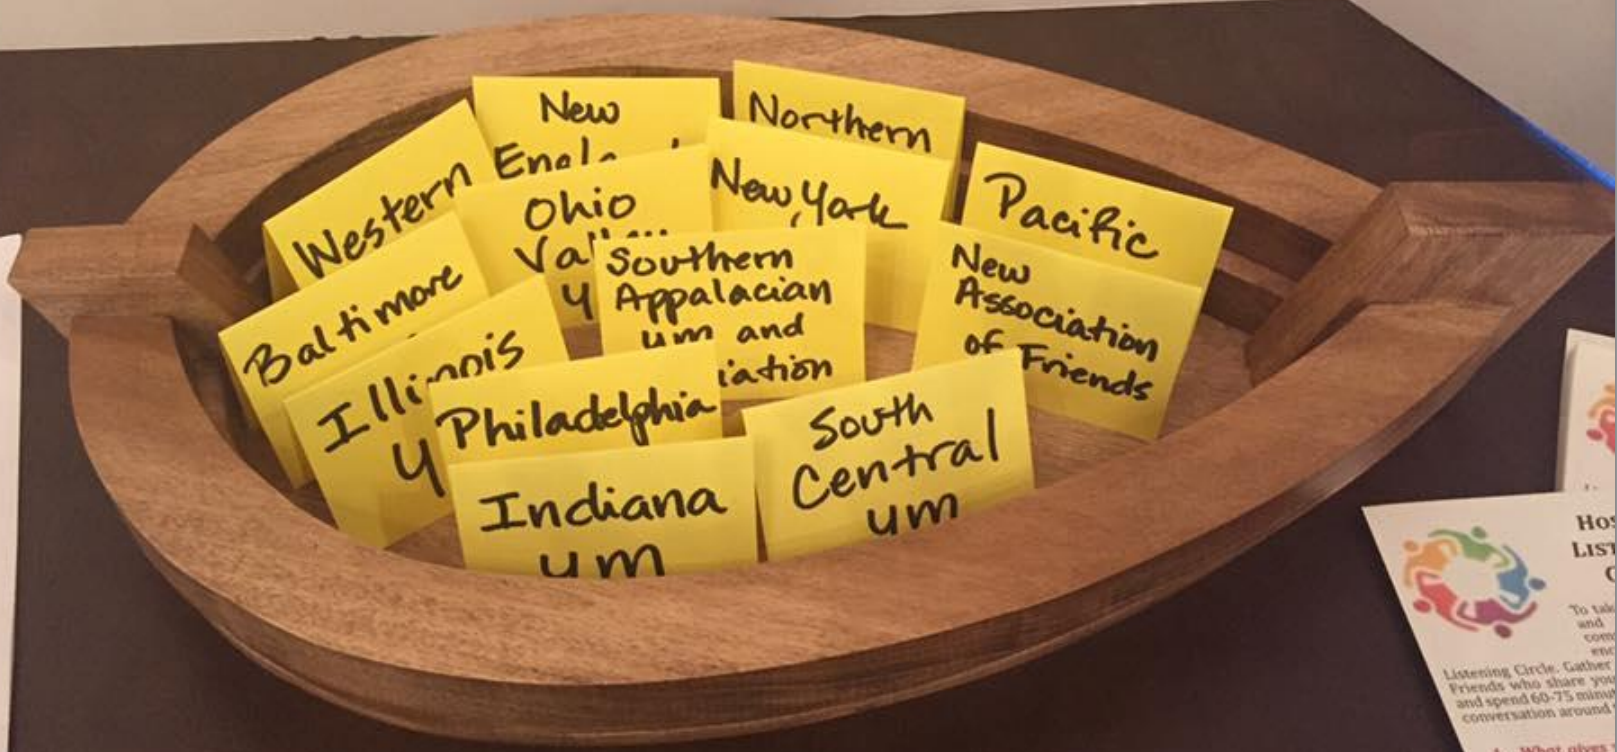 New
England
Northern
Western
Ohio
Valley
Y
New York
Pacific
Baltimore
Southern
Appalacian
YM and
iation
New
Association
of Friends
Illinois
Y
Philadelphia
South
Central
YM
Indiana
YM
Listening Circle. Gather
Friends who share you
and spend 60-75 minu
conversation around
To tak
and
What gives